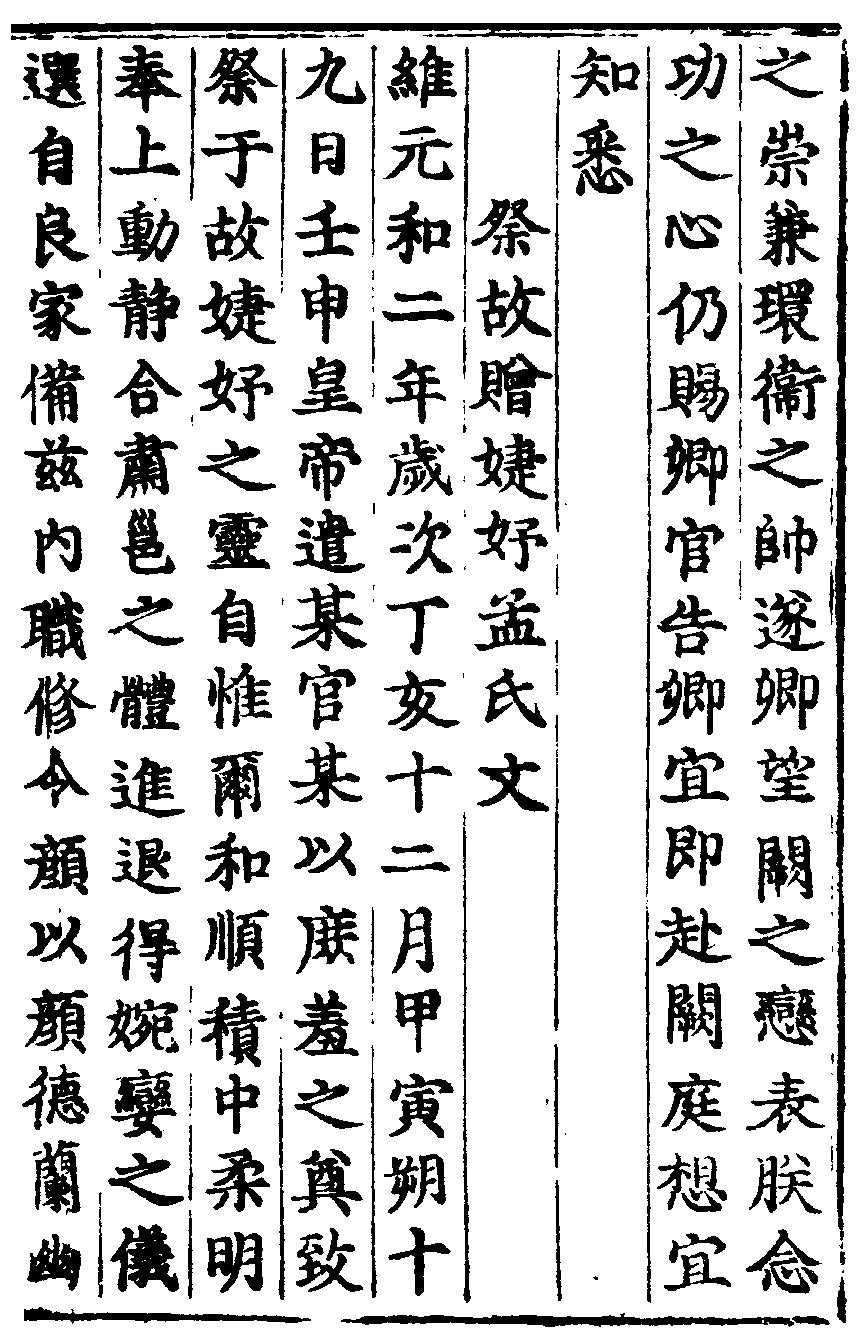 之崇兼環衞之帥遂卿望闕之戀表朕念
功之心仍賜卿官告卿宜即赴闕庭想宜
知悉
祭故贈婕妤孟氏文
維元和二年歲次丁亥十二月甲寅朔十
九日壬申皇帝遣某官某以庶羞之奠致
祭于故婕妤之靈自惟爾和順積中柔明
奉上動靜合肅邕之體進退得婉孌之儀
選自良家備兹内職修令顔以顔德蘭幽